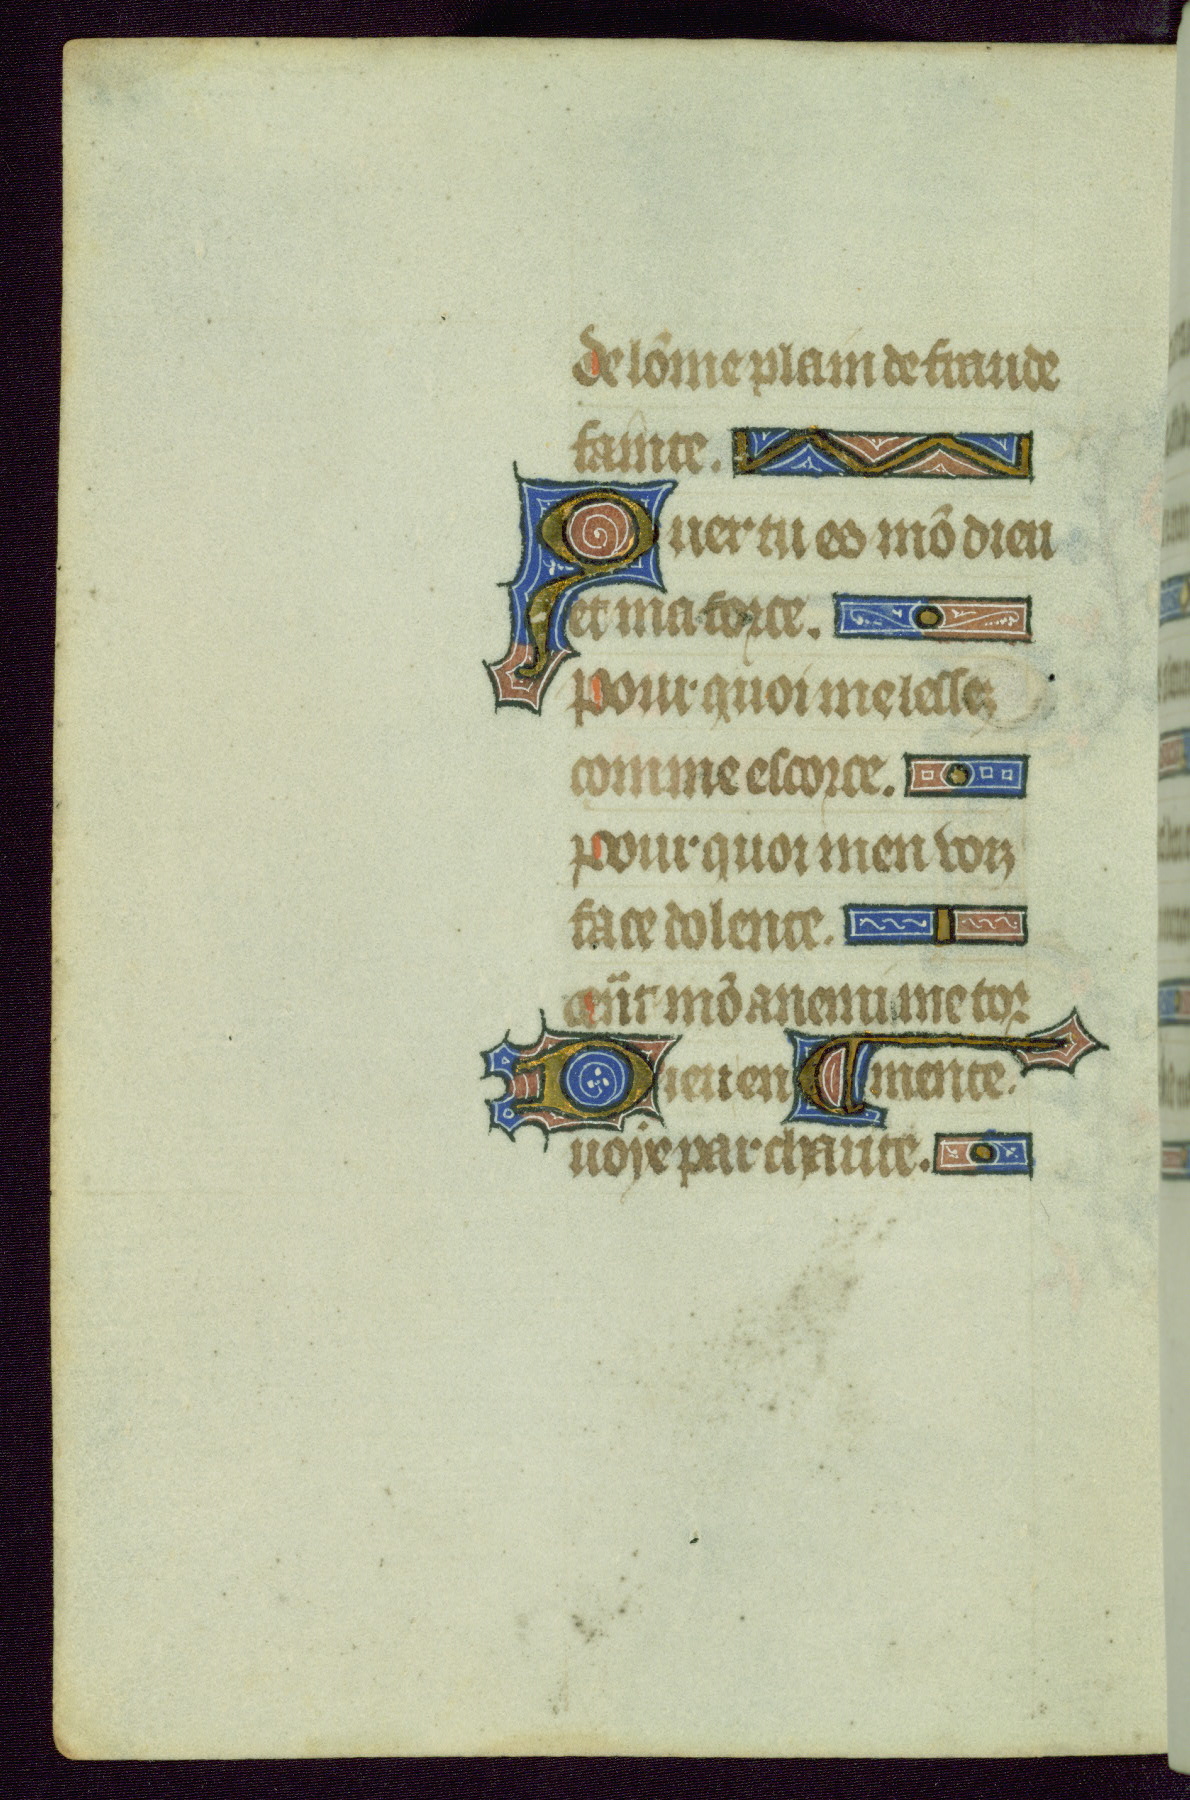 de lo̅me plain de fraude
fainte.
Quer tu es mo̅ dieu
et ma force.
pour quoi me lesses
comme escorce.
pour quoi men voiz
face dolente.
qn̅t mo̅ anemi me tor
mente.
Dieu en
uoye par chaute.